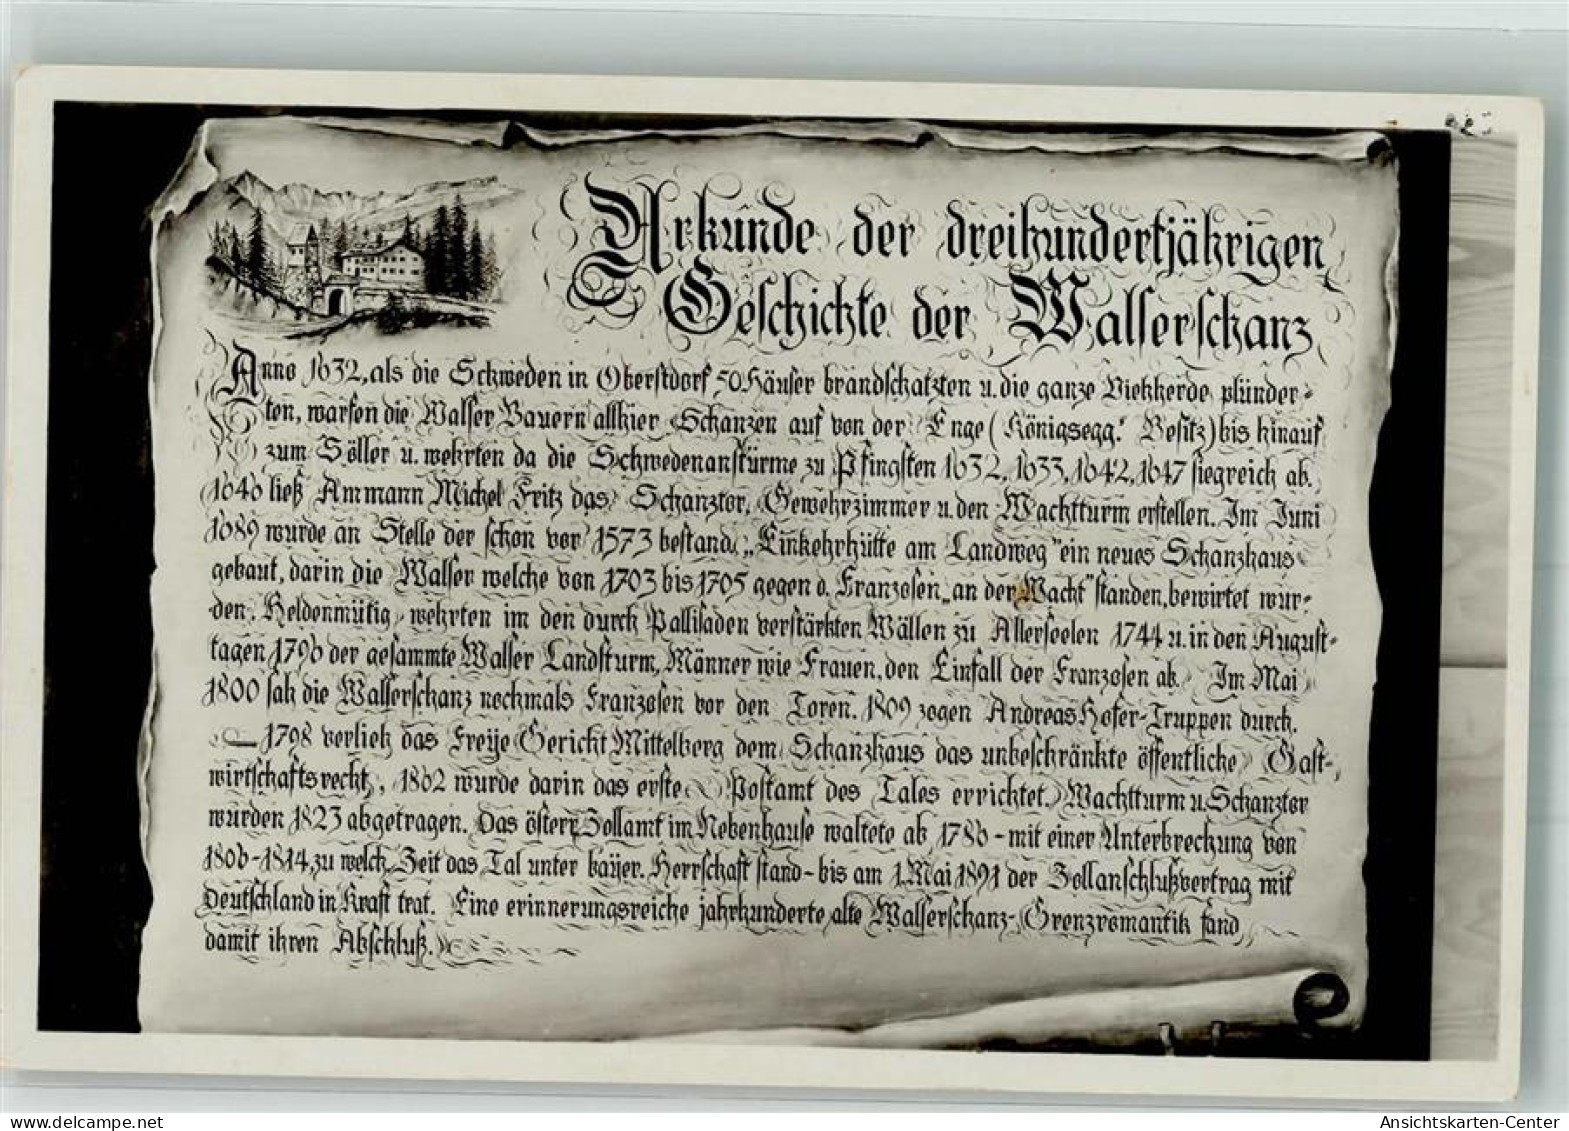 Urkunde der dreihundertjährigen
Geschichte der Walserschanz
Anno 1632, als die Schweden in Oberstdorf 50 Häuser brandschatzten u. die ganze Viehherde plünder-
ten, warfen die Walser Bauern allhier Schanzen auf von der Enge (Königsegg. Besitz) bis hinauf
zum Söller u. wehrten da die Schwedenanstürme zu Pfingsten 1632, 1633, 1642, 1647 siegreich ab.
1646 ließ Ammann Michel Fritz das Schanztor, Gewehrzimmer u. den Wachtturm erstellen. Im Juni
1689 wurde an Stelle der schon vor 1573 bestand. „Einkehrhütte am Landweg" ein neues Schanzhaus
gebaut, darin die Walser welche von 1703 bis 1705 gegen d. Franzosen „an der Wacht" standen, bewirtet wur-
den. Heldenmütig wehrten im den durch Pallisaden verstärkten Wällen zu Allerseelen 1744 u. in den August-
tagen 1796 der gesammte Walser Landsturm, Männer wie Frauen, den Einfall der Franzosen ab. Im Mai
1800 sah die Walserschanz nochmals Franzosen vor den Toren. 1809 zogen Andreas Hofer-Truppen durch.
1798 verlieh das Freye Gericht Mittelberg dem Schanzhaus das unbeschränkte öffentliche Gast-
wirtschaftsrecht, 1862 wurde darin das erste Postamt des Tales errichtet. Wachtturm u. Schanztor
wurden 1823 abgetragen. Das österr. Zollamt im Nebenhause waltete ab 1786 - mit einer Unterbrechung von
1806-1814, zu welch. Zeit das Tal unter bayer. Herrschaft stand - bis am 1. Mai 1891 der Zollanschlußvertrag mit
Deutschland in Kraft trat. Eine erinnerungsreiche jahrhunderte alte Walserschanz-Grenzromantik fand
damit ihren Abschluß.
delcampe.net
Ansichtskarten-Center